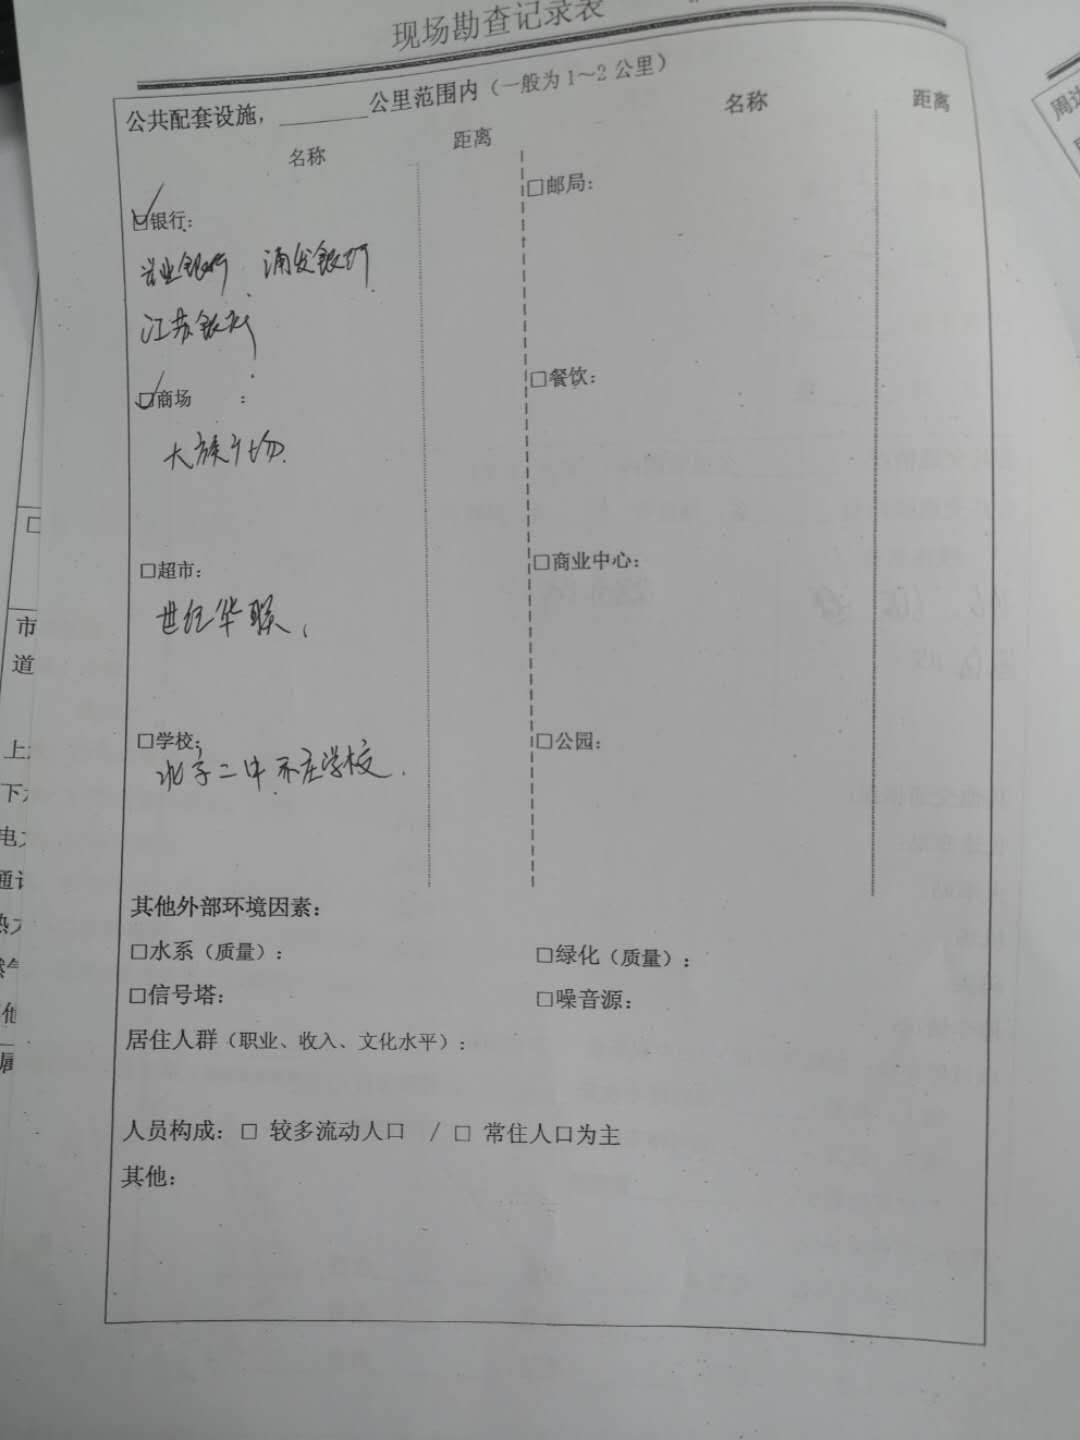 现场勘查记录表
公共配套设施，________公里范围内（一般为1～2公里）
名称 距离 名称 距离
☑银行：
兴业银行 浦发银行
江苏银行
☑商场 ：
大族广场
□超市：
世纪华联、
□学校：
北京二中亦庄学校.
□邮局：
□餐饮：
□商业中心：
□公园：
其他外部环境因素：
□水系（质量）： □绿化（质量）：
□信号塔： □噪音源：
居住人群（职业、收入、文化水平）：
人员构成：□ 较多流动人口 / □ 常住人口为主
其他：
市
道